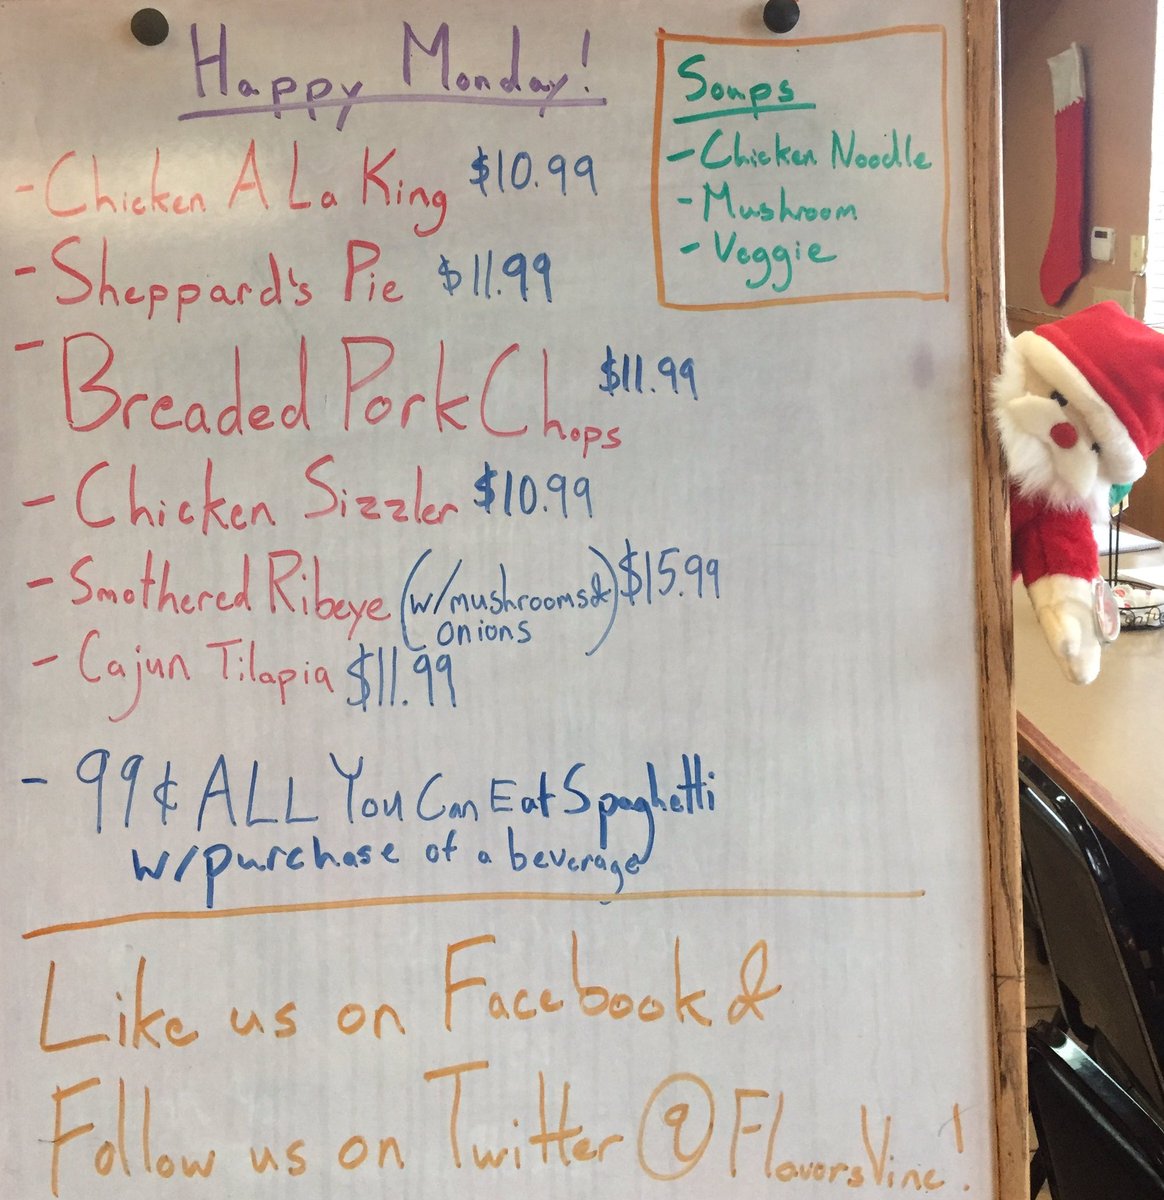 Happy Monday!
Soups
- Chicken Noodle
- Mushroom
- Veggie
- Chicken A La King $10.99
- Sheppard's Pie $11.99
- Breaded Pork Chops $11.99
- Chicken Sizzler $10.99
- Smothered Ribeye (w/mushrooms & onions) $15.99
- Cajun Tilapia $11.99
- 99¢ ALL You Can Eat Spaghetti
w/purchase of a beverage
Like us on Facebook &
Follow us on Twitter @FlavorsVine!